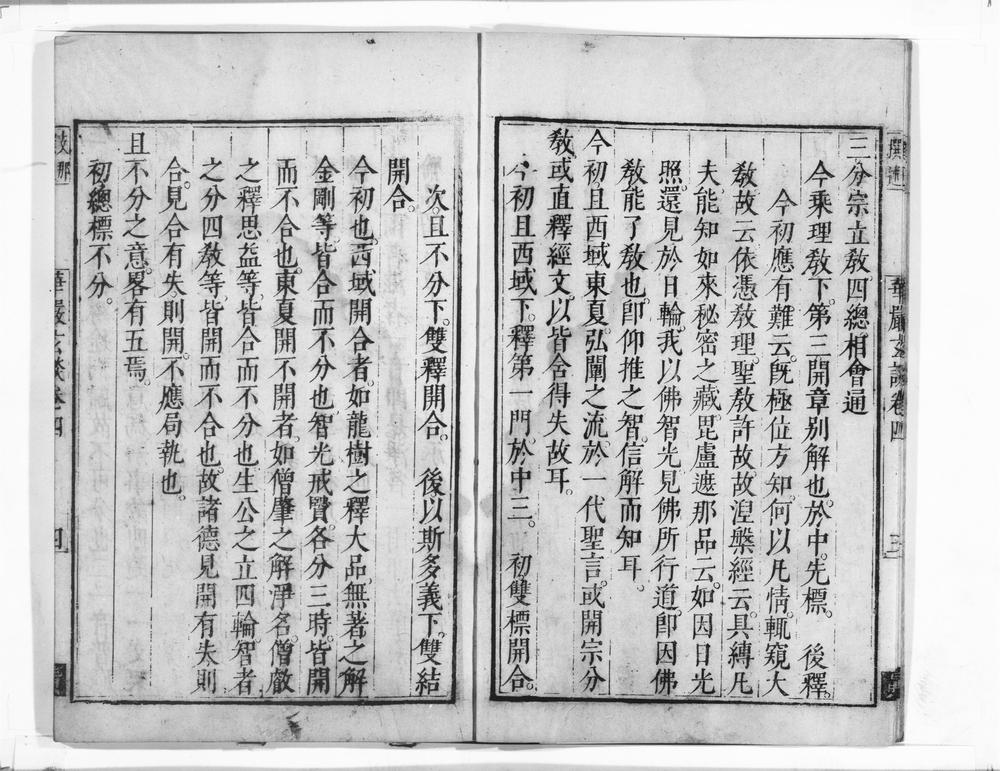 三分宗立敎四總相會通
今乘理敎下第三開章别解也於中先標 後釋
今初應有難云旣極位方知何以凡情輒窺大
敎故云依憑敎理聖敎許故故涅槃經云具縛凡
夫能知如來秘密之藏毘盧遮那品云如因日光
照還見於日輪我以佛智光見佛所行道卽因佛
敎能了敎也卽仰推之智信解而知耳
今初且西域東夏弘闡之流於一代聖言或開宗分
敎或直釋經文以皆舍得失故耳
今初且西域下釋第一門於中三 初雙標開合
次且不分下雙釋開合 後以斯多義下雙結
開合
今初也西域開合者如龍樹之釋大品無著之解
金剛等皆合而不分也智光戒賢各分三時皆開
而不合也東夏開不開者如僧肇之解淨名僧叡
之釋思益等皆合而不分也生公之立四輪智者
之分四敎等皆開而不合也故諸德見開有失則
合見合有失則開不應局執也
且不分之意畧有五焉
初總標不分
華嚴玄談卷四
三
華嚴玄談卷四
四